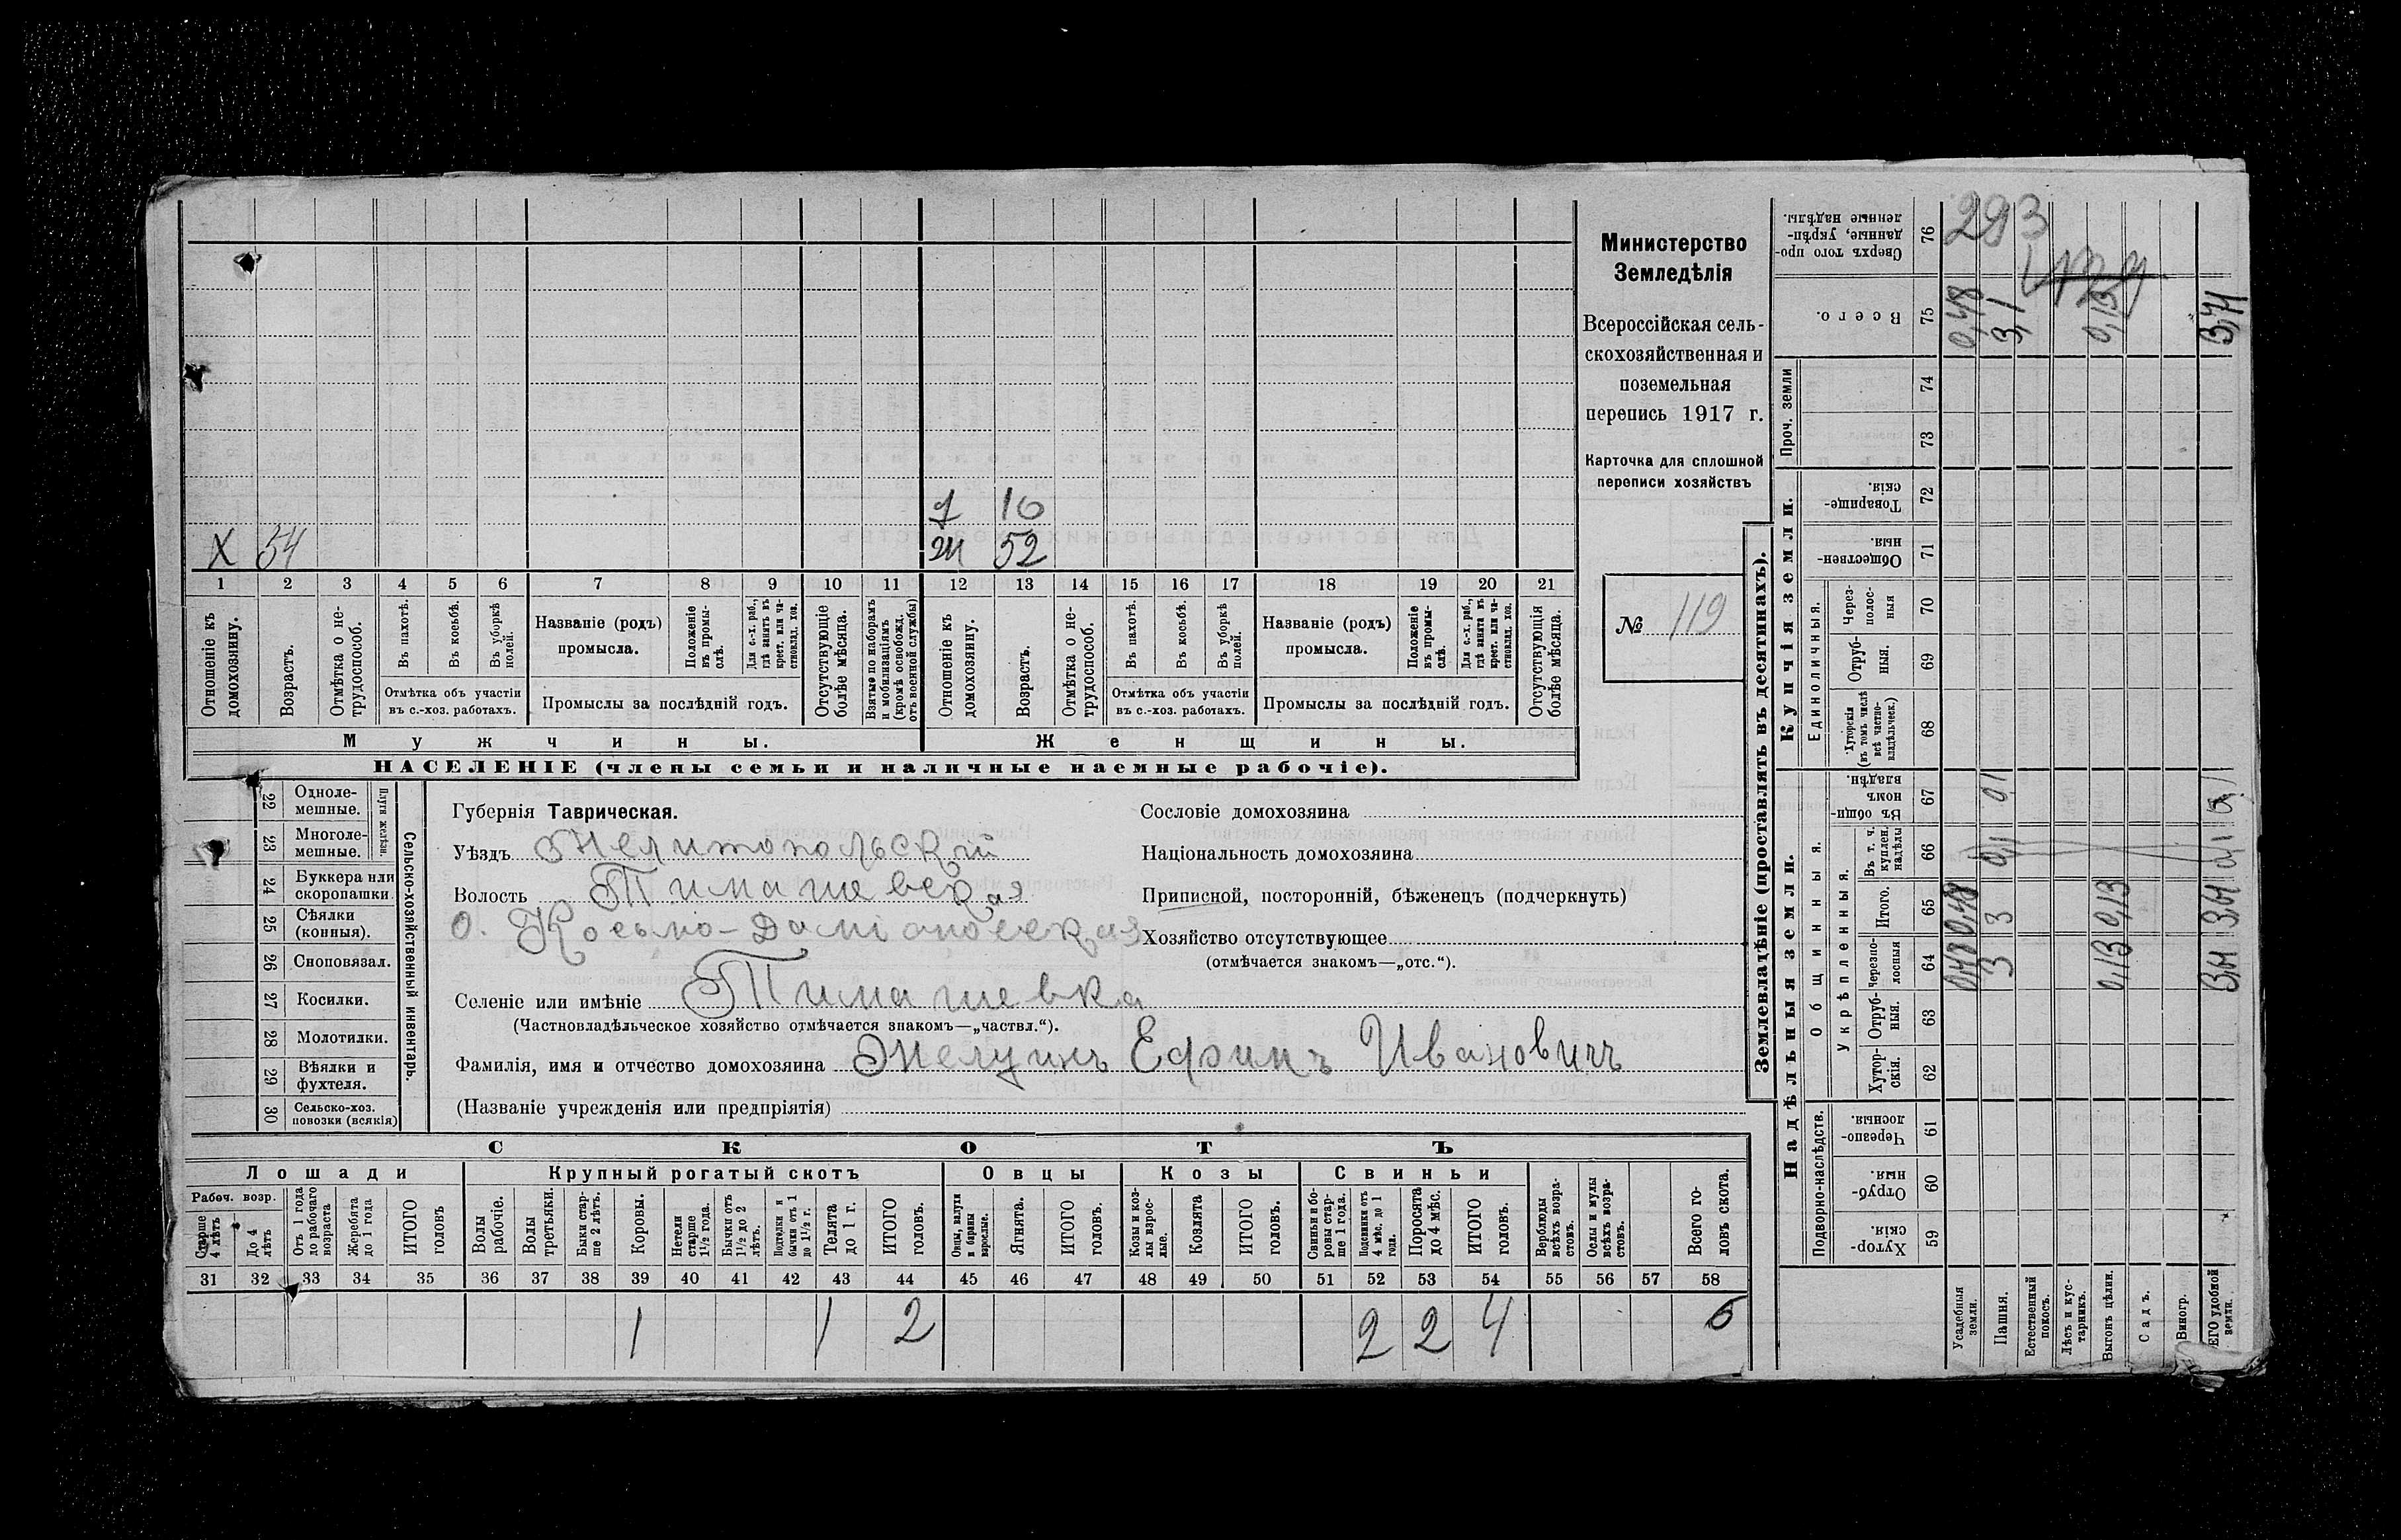 Министерство
Земледѣлія
Всероссійская сель-
скохозяйственная и
поземельная
перепись 1917 г.
Карточка для сплошной
переписи хозяйствъ
№ 119
д 10
Х 54 ж 52
1 2 3 4 5 6 7 8 9 10 11 12 13 14 15 16 17 18 19 20 21
Отношеніе къ домохозяину.
Возрастъ.
Отмѣтка о не-трудоспособ.
Въ пахотѣ.
Въ косьбѣ.
Въ уборкѣ полей.
Отмѣтка объ участіи въ с.-хоз. работахъ.
Названіе (родъ) промысла.
Положеніе въ промы-слѣ.
Для с.-х. раб., гдѣ занятъ въ крест. или ча-стновлад. хоз.
Промыслы за послѣдній годъ.
Отсутствующіе болѣе мѣсяца.
Взятые по наборамъ и мобилизаціямъ (кромѣ освобожд. отъ военной службы)
Отношеніе къ домохозяину.
Возрастъ.
Отмѣтка о не-трудоспособ.
Въ пахотѣ.
Въ косьбѣ.
Въ уборкѣ полей.
Отмѣтка объ участіи въ с.-хоз. работахъ.
Названіе (родъ) промысла.
Положеніе въ промы-слѣ.
Для с.-х. раб., гдѣ занята въ крест. или ча-стновлад. хоз.
Промыслы за послѣдній годъ.
Отсутствующія болѣе мѣсяца.
Мужчины. Женщины.
НАСЕЛЕНІЕ (члены семьи и наличные наемные рабочіе).
Сельско-хозяйственный инвентарь.
Плуги желѣзн.
22 Одноле-мешные.
23 Многоле-мешные.
24 Буккера или скоропашки
25 Сѣялки (конныя).
26 Сноповязал.
27 Косилки.
28 Молотилки.
29 Вѣялки и фухтеля.
30 Сельско-хоз. повозки (всякія)
Губернія Таврическая.
Уѣздъ Мелитопольскій
Волость Тимашевская
О. Косьмо-Даміановская
Селеніе или имѣніе Тимашевка
(Частновладѣльческое хозяйство отмѣчается знакомъ—„частвл.“).
Фамилія, имя и отчество домохозяина Мелунъ Ефимъ Ивановичъ
(Названіе учрежденія или предпріятія)
Сословіе домохозяина
Національность домохозяина
Приписной, посторонній, бѣженецъ (подчеркнуть)
Хозяйство отсутствующее
(отмѣчается знакомъ—„отс.“).
СКОТЪ
Лошади Крупный рогатый скотъ Овцы Козы Свиньи
Рабоч. возр.
Старше 4 лѣтъ
До 4 лѣтъ
Отъ 1 года до рабочаго возраста
Жеребята до 1 года
ИТОГО головъ
Волы рабочіе.
Волы третьяки.
Быки стар-ше 2 лѣтъ.
Коровы.
Нетели старше 1½ года.
Бычки отъ 1½ до 2 лѣтъ.
Подтелки и бычки отъ 1 до 1½ г.
Телята до 1 г.
ИТОГО головъ.
Овцы, валухи и бараны взрослые.
Ягнята.
ИТОГО головъ.
Козы и коз-лы взрос-лые.
Козлята
ИТОГО головъ.
Свиньи и бо-ровы стар-ше 1 года.
Подсвинки отъ 4 мѣс. до 1 года.
Поросята до 4 мѣс.
ИТОГО головъ.
Верблюды всѣхъ возра-стовъ.
Ослы и мулы всѣхъ возра-стовъ.
Всего го-ловъ скота.
31 32 33 34 35 36 37 38 39 40 41 42 43 44 45 46 47 48 49 50 51 52 53 54 55 56 57 58
1 1 2 2 2 4 6
Землевладѣніе (проставлять въ десятинахъ).
Купчія земли.
Надѣльныя земли.
76 Сверхъ того про-данные, укрѣп-ленные надѣлы. 293
75 Всего. 0,48 3,1 0,13 3,71
Проч. земли
74
73
72 Товарище-скія.
71 Обществен-ныя.
Единоличныя.
70 Через-полос-ныя
69 Отруб-ныя.
68 Хуторскія (въ томъ числѣ всѣ частно-владѣльческ.)
Общинныя.
67 Въ общин-номъ владѣн. 0,1
Укрѣпленныя.
66 Въ т. ч. куплен. надѣлы 0,1
65 Итого. 0,48 3 0,13 3,61
64 Черезпо-лосныя 0,48 3 0,13 3,61
63 Отруб-ныя.
62 Хутор-скія.
Подворно-наслѣдств.
61 Черезпо-лосныя.
60 Отруб-ныя.
59 Хутор-скія.
Усадебныя земли.
Пашня.
Естественный покосъ.
Лѣсъ и кус-тарникъ.
Выгонъ цѣлин.
Садъ.
Виногр.
ЕГО удобной земли.